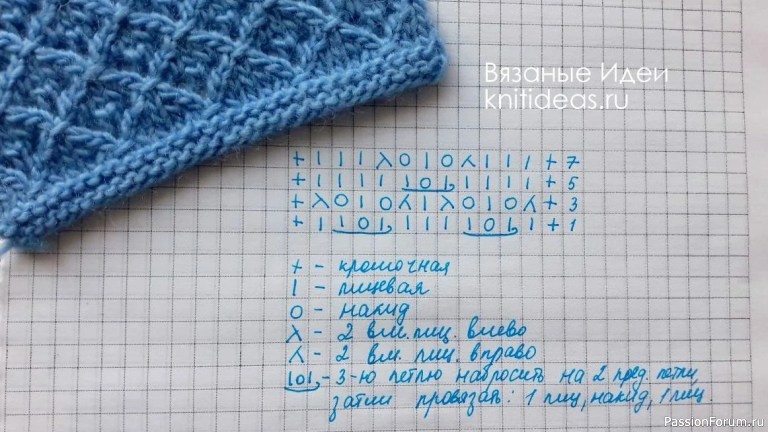 Вязаные Идеи
knitideas.ru
+ 1 1 1 λ 0 1 0 ʎ 1 1 1 + 7
+ 1 1 1 1 1 0 1 1 1 1 1 + 5
+ λ 0 1 0 ʎ 1 λ 0 1 0 ʎ + 3
+ 1 1 0 1 1 1 1 1 0 1 1 + 1
+ - кромочная
1 - лицевая
0 - накид
λ - 2 вм. лиц. влево
ʎ - 2 вм. лиц. вправо
101 - 3-ю петлю набросить на 2 пред. петли,
затем провязать: 1 лиц, накид, 1 лиц.
PassionForum.ru